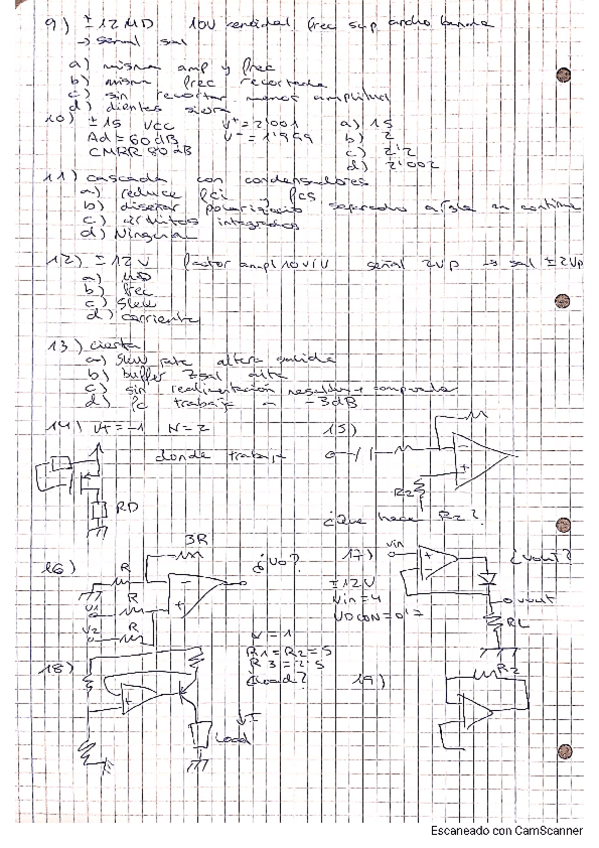 9) ±12 MD 10V senoidal frec sup ancho banda
→ señal sal
a) misma amp y frec
b) misma frec recortada
c) sin recortar menos amplitud
d) dientes sierra
10) ±15 Vcc V+ = 2'001 a) 15
Ad = 60 dB V- = 1'999 b) 2
CMRR 80 dB c) 2'2
d) 2'002
11) cascada con condensadores
a) reduce fci y fcs
b) diseñar polarización separado aísla en continua
c) circuitos integrados
d) Ninguna
12) ±12V factor ampl 10 V/V señal 2Vp → sal ±2Vp
a)
b) frec
c) Slew
d) corriente
13) cierta
a) Slew rate altera
b) buffer Zsal alta
c) sin realimentación negativa → comparador
d) fc trabaja -3dB
14) VT = -1 N = 2
donde trabaja
RD
15)
R2
¿Que hace R2?
16) ¿Vo?
3R
R
V1 R
V2 R
17) Vin ¿Vout?
±12V
Vin = 4
VDCON = 0'7
Vout
RL
18) V = 1
R1 = R2 = 5
R3 = 2'5
¿Load?
I
Load
19) R2
Escaneado con CamScanner